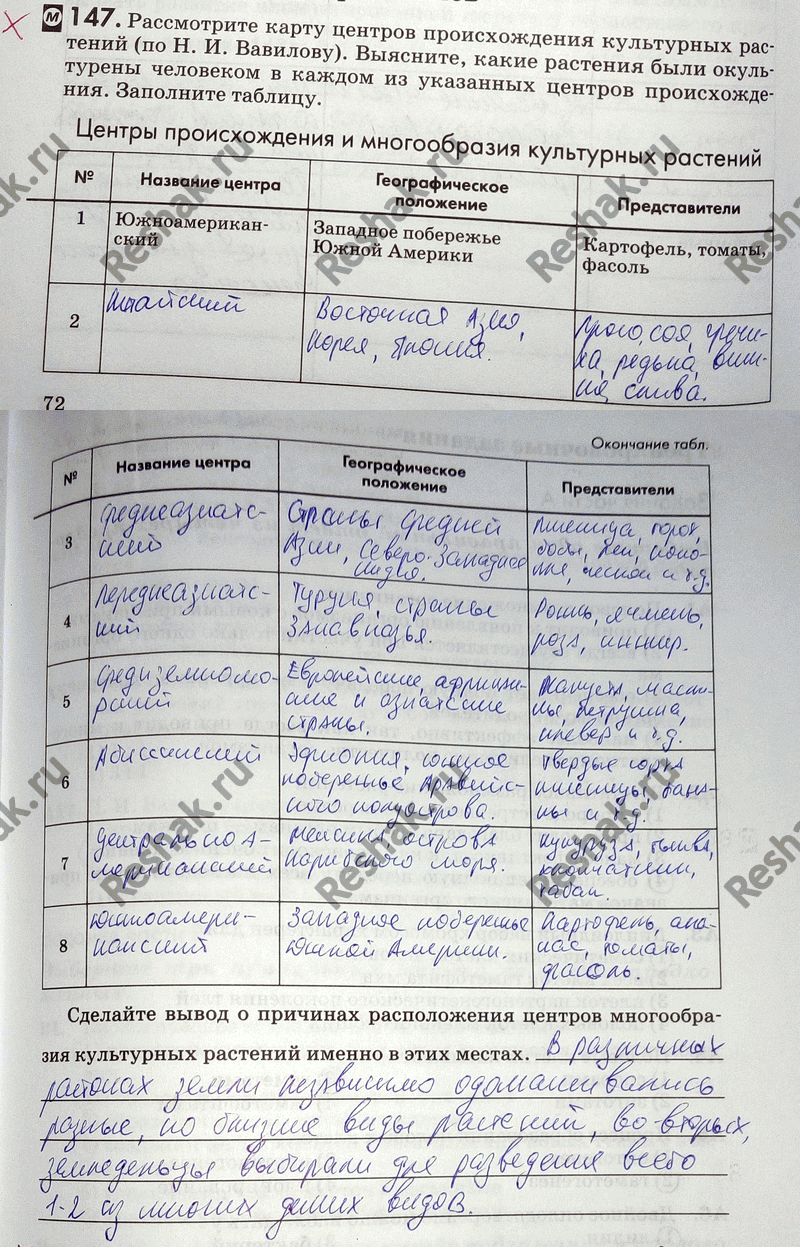 М 147. Рассмотрите карту центров происхождения культурных рас-
тений (по Н. И. Вавилову). Выясните, какие растения были окуль-
турены человеком в каждом из указанных центров происхожде-
ния. Заполните таблицу.
Центры происхождения и многообразия культурных растений
№ Название центра Географическое положение Представители
1 Южноамерикан-
ский
Западное побережье
Южной Америки
Картофель, томаты,
фасоль
2 Китайский
Восточная Азия,
Корея, Япония.
Просо, соя, гречи-
ха, редька, виш-
ня, слива.
72
Окончание табл.
№ Название центра Географическое положение Представители
3 Среднеазиатс-
кий
Страны Средней
Азии, Северо-Западная
Индия.
Пшеница, горох,
бобы, лен, коно-
пля, чеснок и т.д.
4 Переднеазиатс-
кий
Турция, страны
Закавказья.
Рожь, ячмень,
роза, инжир.
5 Средиземномо-
рский
Европейские африкан-
ские и азиатские
страны.
Капуста, масли-
ны, петрушка,
клевер и т.д.
6 Абиссинский
Эфиопия, южное
побережье Аравийс-
кого полуострова.
Твердые сорта
пшеницы, бана-
ны и т.д.
7 Центрально А-
мериканский
Мексика, острова
Карибского моря.
Кукуруза, тыква,
хлопчатник,
табак.
8 Южноамери-
канский
Западное побережье
Южной Америки.
Картофель, ана-
нас, томаты,
фасоль.
Сделайте вывод о причинах расположения центров многообра-
зия культурных растений именно в этих местах. В различных
районах земли независимо одомашнивались
разные, но близкие виды растений, во-вторых,
земледельцы выбирали для разведения всего
1-2 из многих диких видов.
Reshak.ru
Reshak.ru
Reshak.ru
Reshak.ru
Reshak.ru
Reshak.ru